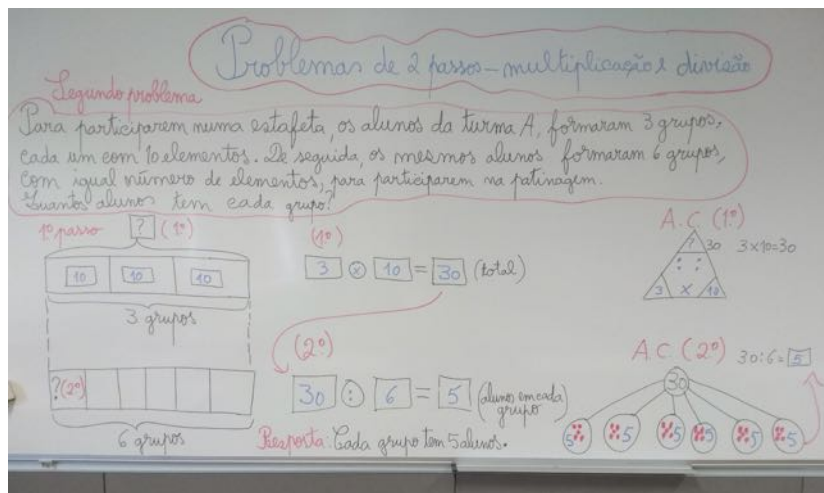 Problemas de 2 passos - multiplicação e divisão
Segundo problema
Para participarem numa estafeta, os alunos da turma A, formaram 3 grupos,
cada um com 10 elementos. De seguida, os mesmos alunos formaram 6 grupos,
com igual número de elementos, para participarem na patinagem.
Quantos alunos tem cada grupo?
1º passo ? (1º)
10 10 10
3 grupos
?(2º)
6 grupos
(1º)
3 × 10 = 30 (total)
(2º)
30 : 6 = 5 (alunos em cada
grupo)
Resposta: Cada grupo tem 5 alunos.
A.C. (1º)
? 30 3×10=30
: :
3 × 10
A.C. (2º) 30:6=5
30
5 5 5 5 5 5